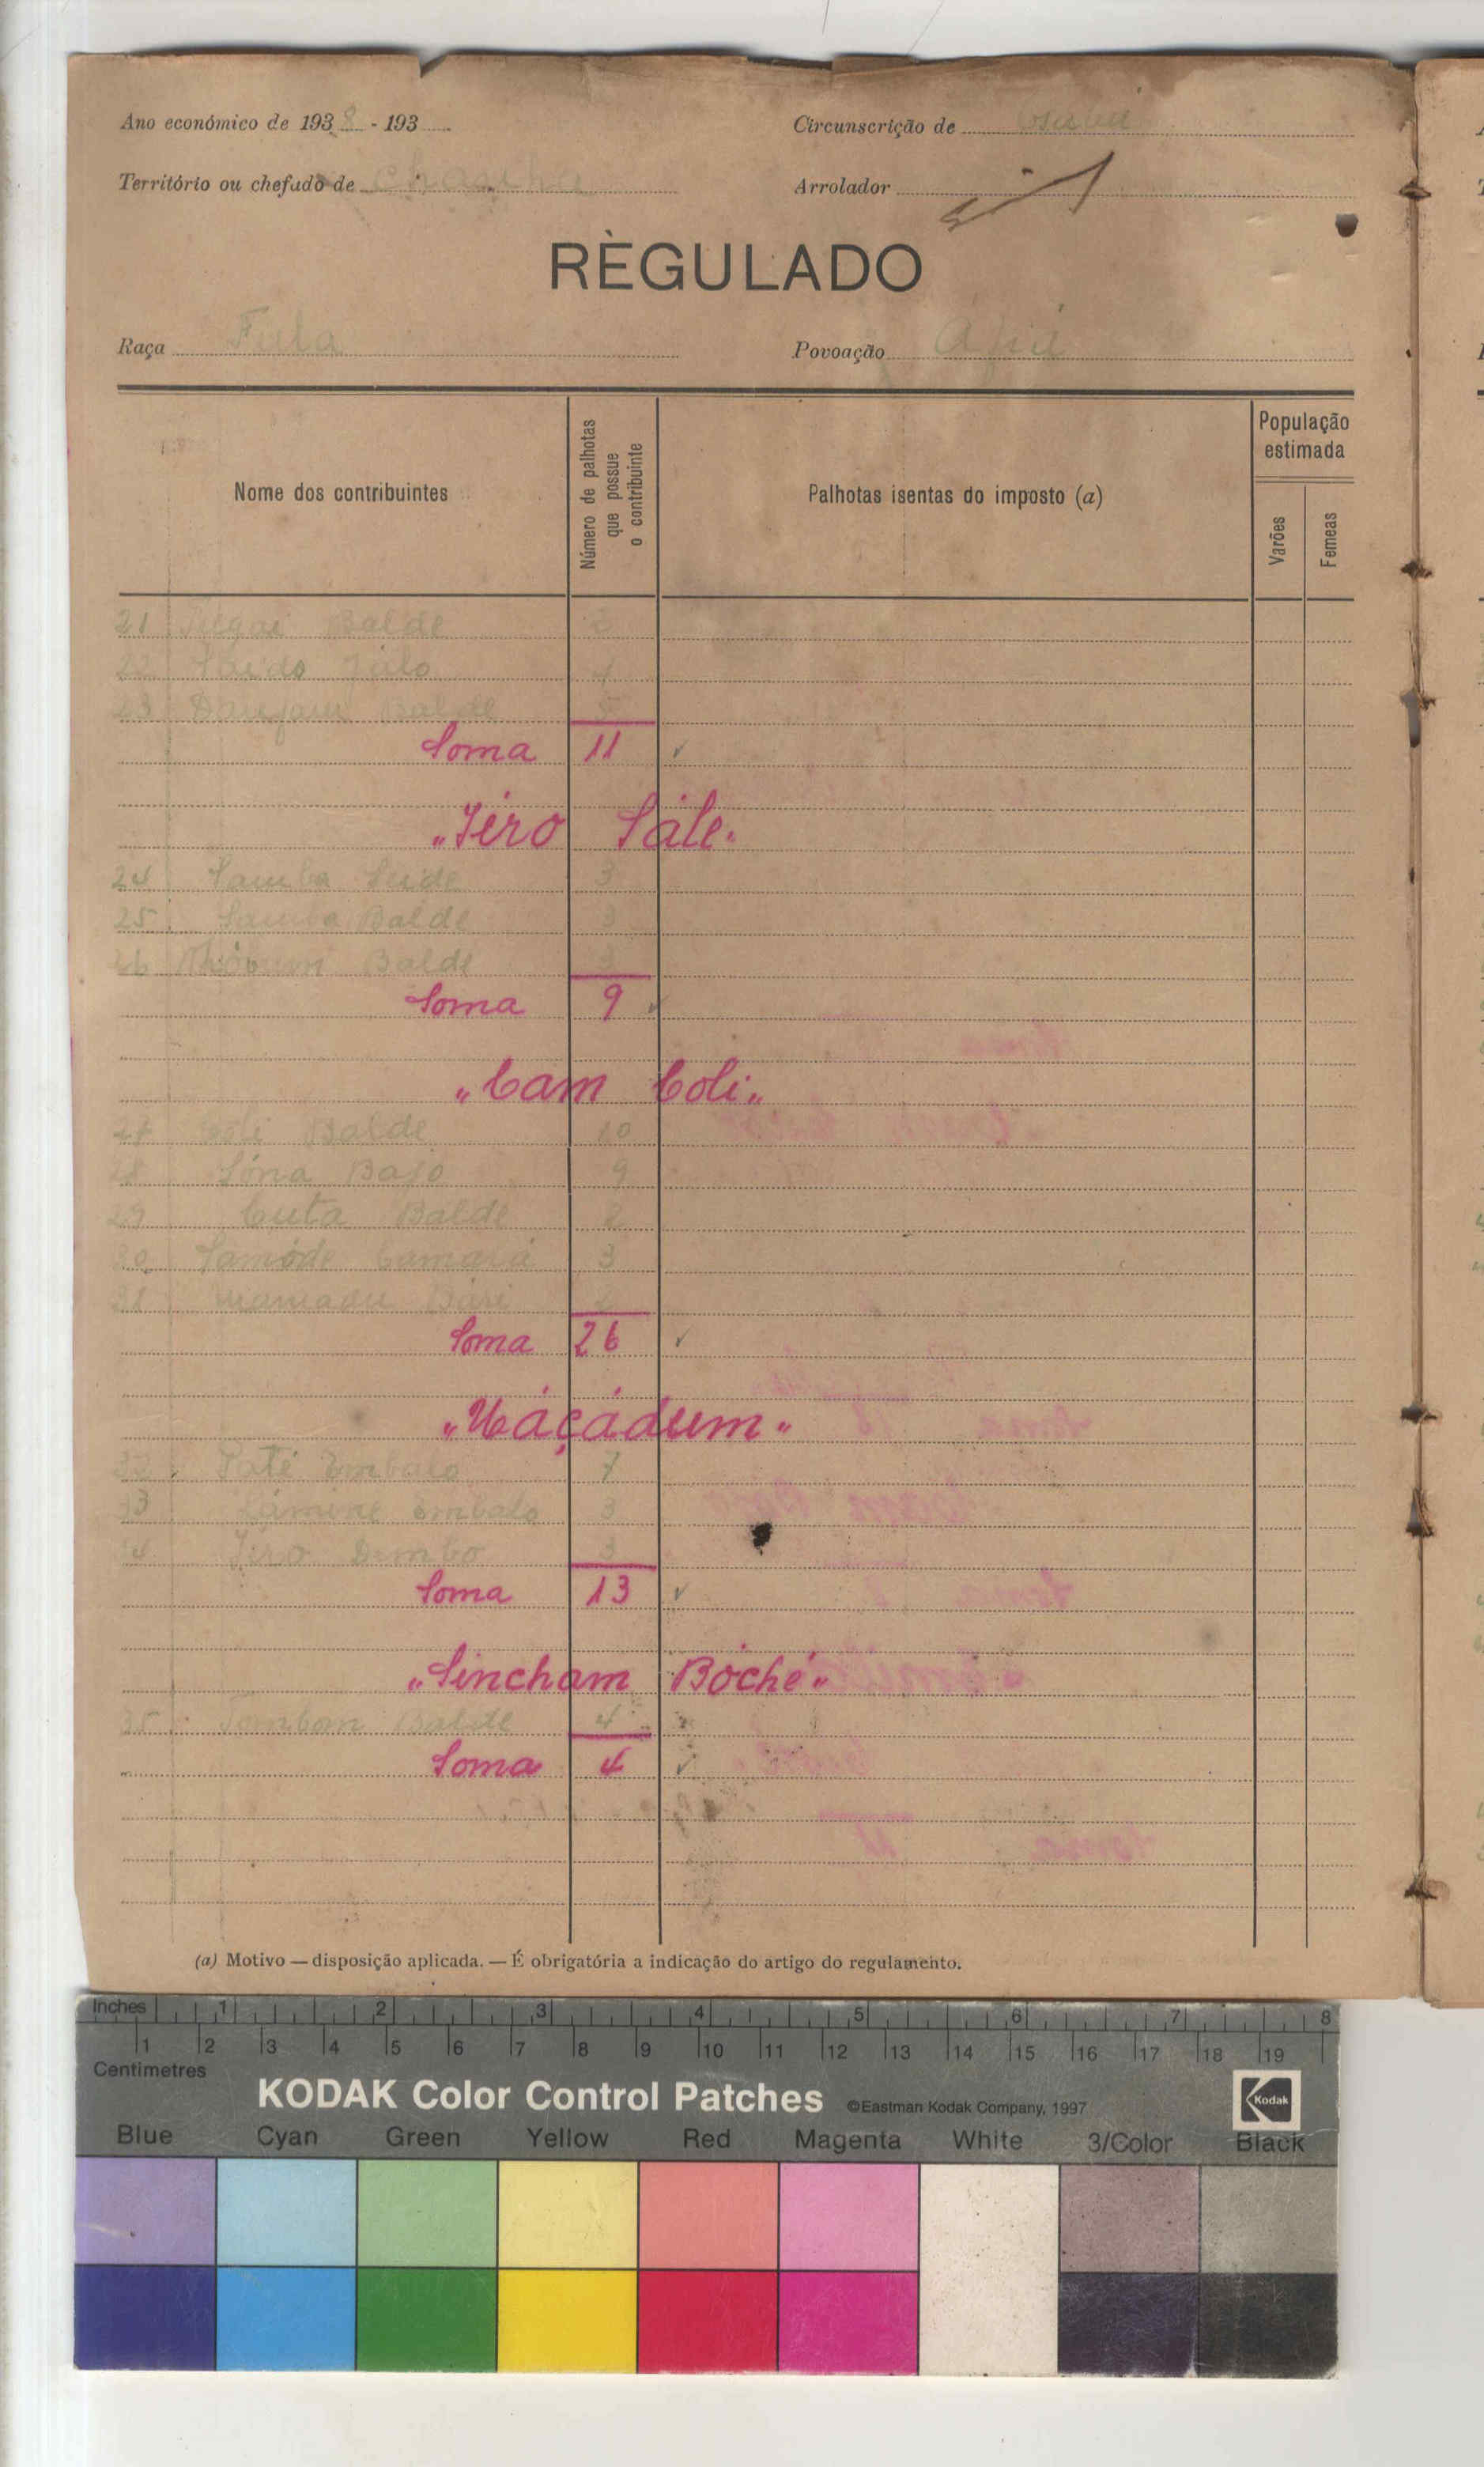 Ano económico de 1938 - 193
Circunscrição de
Território ou chefado de
Arrolador
RÈGULADO
Raça Fula
Povoação
Nome dos contribuintes
Número de palhotas que possue o contribuinte
Palhotas isentas do imposto (a)
População estimada
Varões
Femeas
21 Balde
22 Saido Jalo 4
23 Balde
Soma 11 ✓
"Jéro Sále"
24 Samba Seide 3
25 Samba Balde 3
26 Balde 3
Soma 9 ✓
"Cam Coli"
27 Coli Balde 10
28 Sóna Bajo 9
29 Cuta Balde 2
30 Samóde Camará 3
31 Mamadu Bari 2
Soma 26 ✓
"Uáçádum"
32 Paté Embalo 7
33 Lamine Embalo 3
34 Jero Dembo 3
Soma 13 ✓
"Sincham Bóché"
35 Tombom Balde 4
Soma 4 ✓
(a) Motivo — disposição aplicada. — É obrigatória a indicação do artigo do regulamento.
Inches 1 2 3 4 5 6 7 8
1 2 3 4 5 6 7 8 9 10 11 12 13 14 15 16 17 18 19
Centimetres
KODAK Color Control Patches ©Eastman Kodak Company, 1997 Kodak
Blue Cyan Green Yellow Red Magenta White 3/Color Black